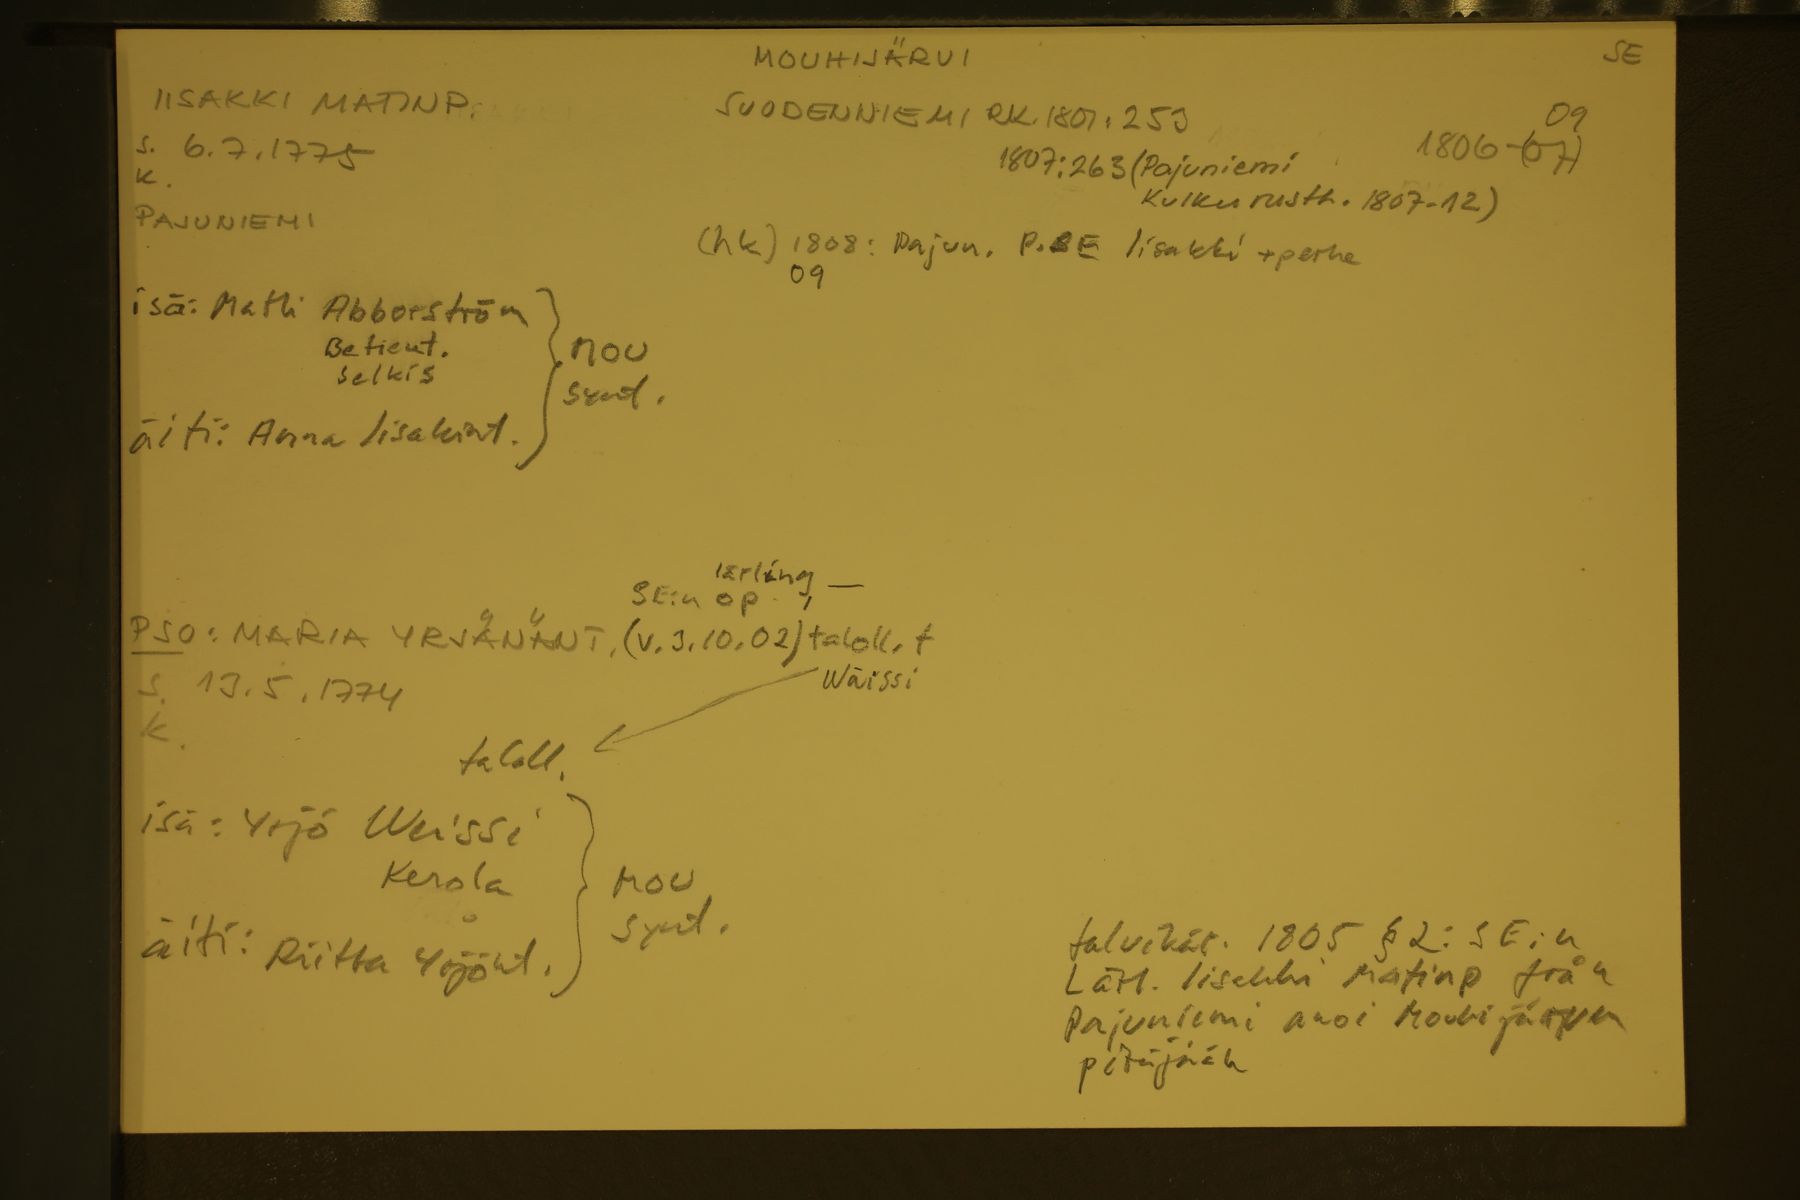 MOUHIJÄRVI
SE
IISAKKI MATINP.
SUODENNIEMI RK. 1801: 253
09
s. 6.7.1775
1807: 263 (Pajuniemi
1806-(07)
k.
Kulku rusth. 1807-12)
PAJUNIEMI
(hk) 1808: Pajun. P. SE Iisakki + perhe
09
isä: Matti Abborström
Betient.
Selkis
MOU
synt.
äiti: Anna Iisakint.
lärling, —
SE:n op.
PSO: MARIA YRJÄNÄNT. (v. 3.10.02) taloll. t
Wäissi
s. 13.5.1774
k.
taloll.
isä: Yrjö Weissi
Kerola
MOU
synt.
äiti: Riitta Yrjönt.
talvikär. 1805 § 2: SE:n
Lätl. Iisakki Matinp från
Pajuniemi anoi Mouhijärven
pitäjään